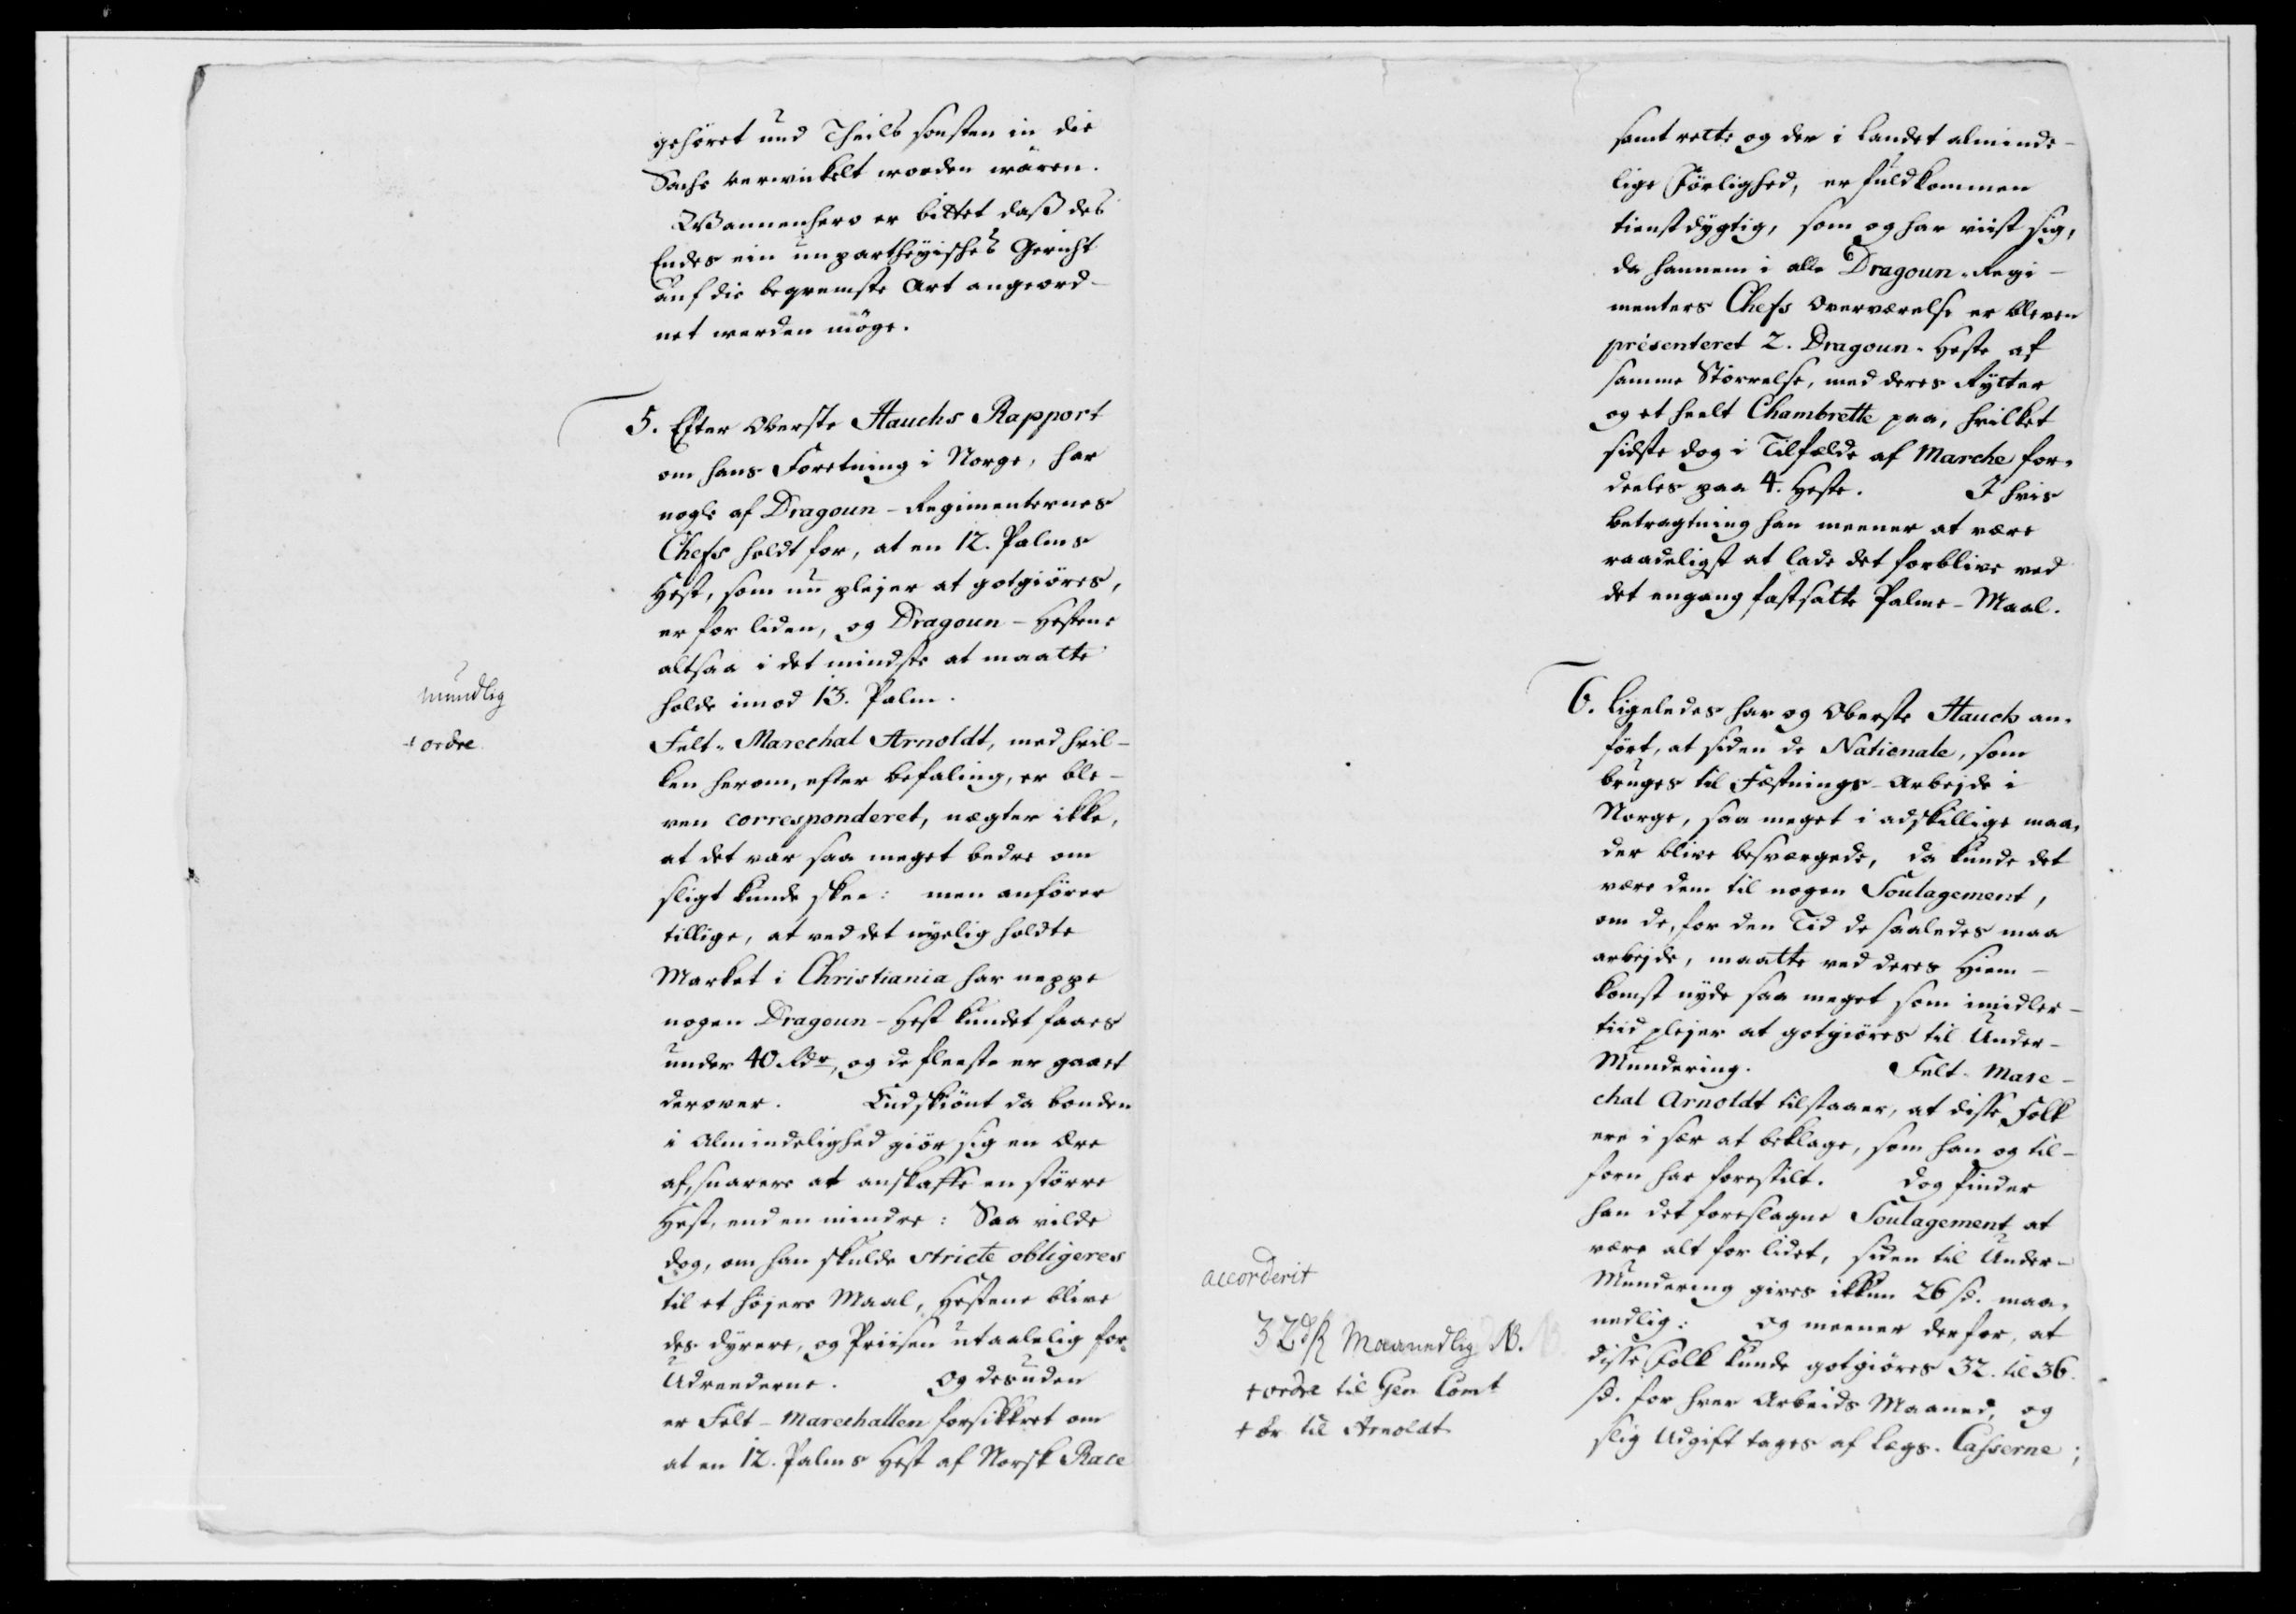 gehöret und Theils sonsten in die
Sache verwickelt worden wären.
Wannenhero er bittet daß des
Endes ein unpartheyisches Gericht
auf die beqvemste Art angeord-
net werden möge.
5. Efter Oberste Hauchs Rapport
om hans Forretning i Norge, har
nogle af Dragoun-Regimenternes
Chefs holdt for, at en 12. Palms
Hest, som nu plejer at gotgiöres,
er for liden, og Dragoun-Hestene
altsaa i det mindste at maatte
holde imod 13. Palm.
mundlig
+ ordre
Felt-Marechal Arnoldt, med hvil-
ken herom, efter befaling, er ble-
ven corresponderet, nægter ikke,
at det var saa meget bedre om
sligt kunde skee: men anförer
tillige, at ved det nyelig holdte
Market i Christiania har neppe
nogen Dragoun-Hest kundet faaes
under 40 Rdr, og de fleeste er gaaet
derover. Endskiönt da bonden
i Almindelighed giör sig en Ære
af, snarere at anskaffe en större
Hest, end en mindre: Saa vilde
dog, om han skulde stricte obligeres
til et höjere Maal, Hestene blive
des dyrere, og Priisen utaalelig for
Udrederne. Og desuden
er Felt-Marechallen forsikkret om
at en 12. Palms Hest af Norsk Race
samt rette og der i Landet alminde-
lige Förlighed, er fuldkommen
tienstdygtig, som og har viist sig,
da hannem i alle Dragoun-Regi-
menters Chefs Overværelse er bleven
præsenteret 2. Dragoun-Heste af
samme Störrelse, med deres Rytter
og et heelt Chambrette paa, hvilket
sidste dog i Tilfælde af Marche for-
deeles paa 4. Heste. I hvis
betragtning han meener at være
raadeligst at lade det forblive ved
det engang fastsatte Palme-Maal.
6. Ligeledes har og Oberste Hauch an-
fört, at siden de Nationale, som
bruges til Fæstnings-Arbejde i
Norge, saa meget i adskillige maa-
der blive besværgede, da kunde det
være dem til nogen Soulagement,
om de, for den Tid de saaledes maa
arbejde, maatte ved deres Hiem-
komst nyde saa meget som imidler-
tiid plejer at gotgiöres til Under-
Mundering. Felt-Mare-
chal Arnoldt tilstaaer, at disse Folk
ere i sær at beklage, som han og til-
forn har forestilt. Dog finder
han det foreslagne Soulagement at
være alt for lidet, siden til Under-
Mundering gives ikkun 26 ß. maa-
nedlig: og meener derfor, at
disse Folk kunde gotgiöres 32. til 36.
ß. for hver Arbeids Maaned, og
slig Udgift tages af Lægs-Casserne;
accorderit
32 dß Maanedlig NB.
+ ordre til Gen Comt
+ Br til Arnoldt